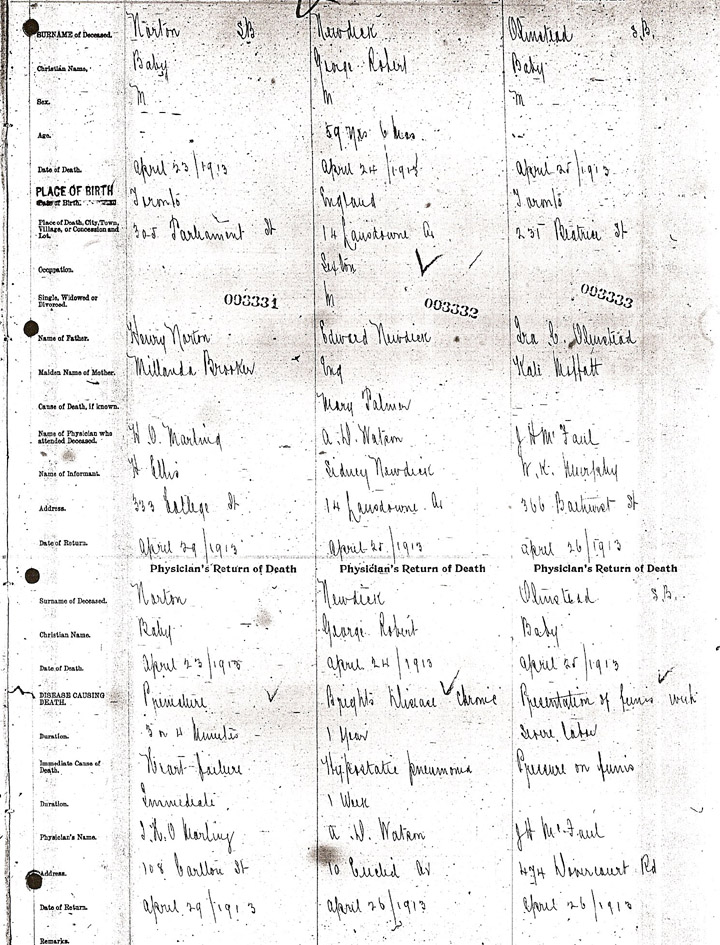 SURNAME of Deceased. Norton SB Newdick Olmstead S.B.
Christian Name. Baby George Robert Baby
Sex. M M M
Age. - 59 yrs 6 mos -
Date of Death. April 23/1913 April 24/1913 April 25/1913
PLACE OF BIRTH Toronto England Toronto
Place of Death, City, Town, Village, or Concession and Lot. 305 Parliament St 14 Lansdowne Av 235 Beatrice St
Occupation. Sexton
Single, Widowed or Divorced. 003331 M 003332 003333
Name of Father. Henry Norton Edward Newdick Ira Olmstead
Maiden Name of Mother. Millanda Brooker Eng Kate Moffatt
Cause of Death, if known. Mary Palmer
Name of Physician who attended Deceased. Marling A. D. Watson J H McFaul
Name of Informant. H Ellis Sidney Newdick W. K. Murphy
Address. 333 College St 14 Lansdowne Av 366 Bathurst St
Date of Return. April 29/1913 April 25/1913 April 26/1913
Physician's Return of Death Physician's Return of Death Physician's Return of Death
Surname of Deceased. Norton Newdick Olmstead S.B.
Christian Name. Baby George Robert Baby
Date of Death. April 23/1913 April 24/1913 April 25/1913
DISEASE CAUSING DEATH. Premature Brights Disease Chronic Presentation of funis with
Duration. 3 or 4 Minutes 1 Year Severe labor
Immediate Cause of Death. Heart failure Hypostatic pneumonia Pressure on funis
Duration. Immediate 1 Week
Physician's Name. Marling A. D. Watson J H McFaul
Address. 108 Carlton St 10 Euclid Av 474 Dovercourt Rd
Date of Return. April 29/1913 April 26/1913 April 26/1913
Remarks.